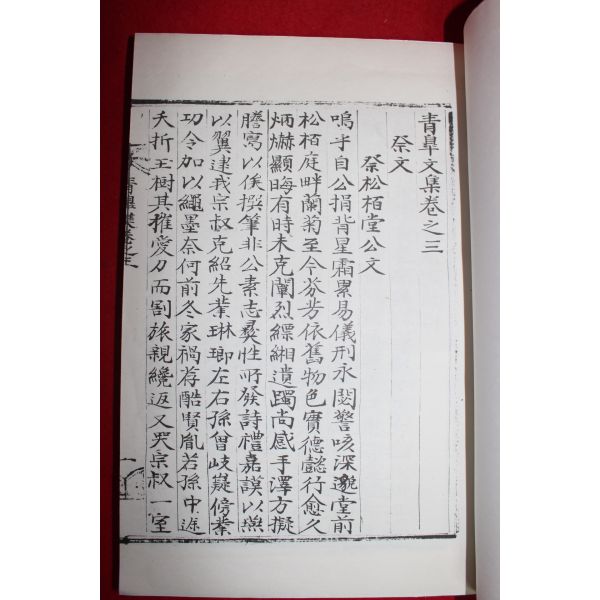 青皐文集卷之三
祭文
祭松栢堂公文
嗚乎自公捐背星霜累易儀刑永閟警咳深邈堂前
松栢庭畔蘭菊至今芬芳依舊物色實德懿行愈久
炳爀顯晦有時未克闡烈縹緗遺躅尚感手澤方擬
謄寫以俟撰筆非公素志彛性所發詩禮嘉謨以燕
以翼逮我宗叔克紹先業琳瑯左右孫曾岐嶷傍業
功令加以繩墨奈何前冬家禍荐酷賢胤若孫中途
夭折王樹其摧愛刀而割旅親纔返又哭宗叔一室